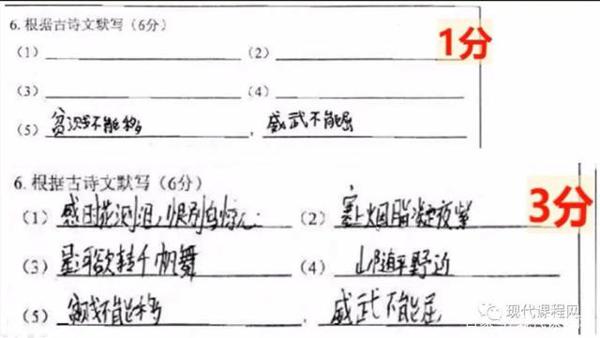 6. 根据古诗文默写（6分） 1分
（1） （2）
（3） （4）
（5） 不能移 ， 武不能屈
6. 根据古诗文默写（6分） 3分
（1） 花测泪，恨别鸟惊心 （2） 塞上烟脂凝夜紫
（3） 星河欲转千帆舞 （4） 山随平野近
（5） 不能移 ， 威武不能屈
现代课程网